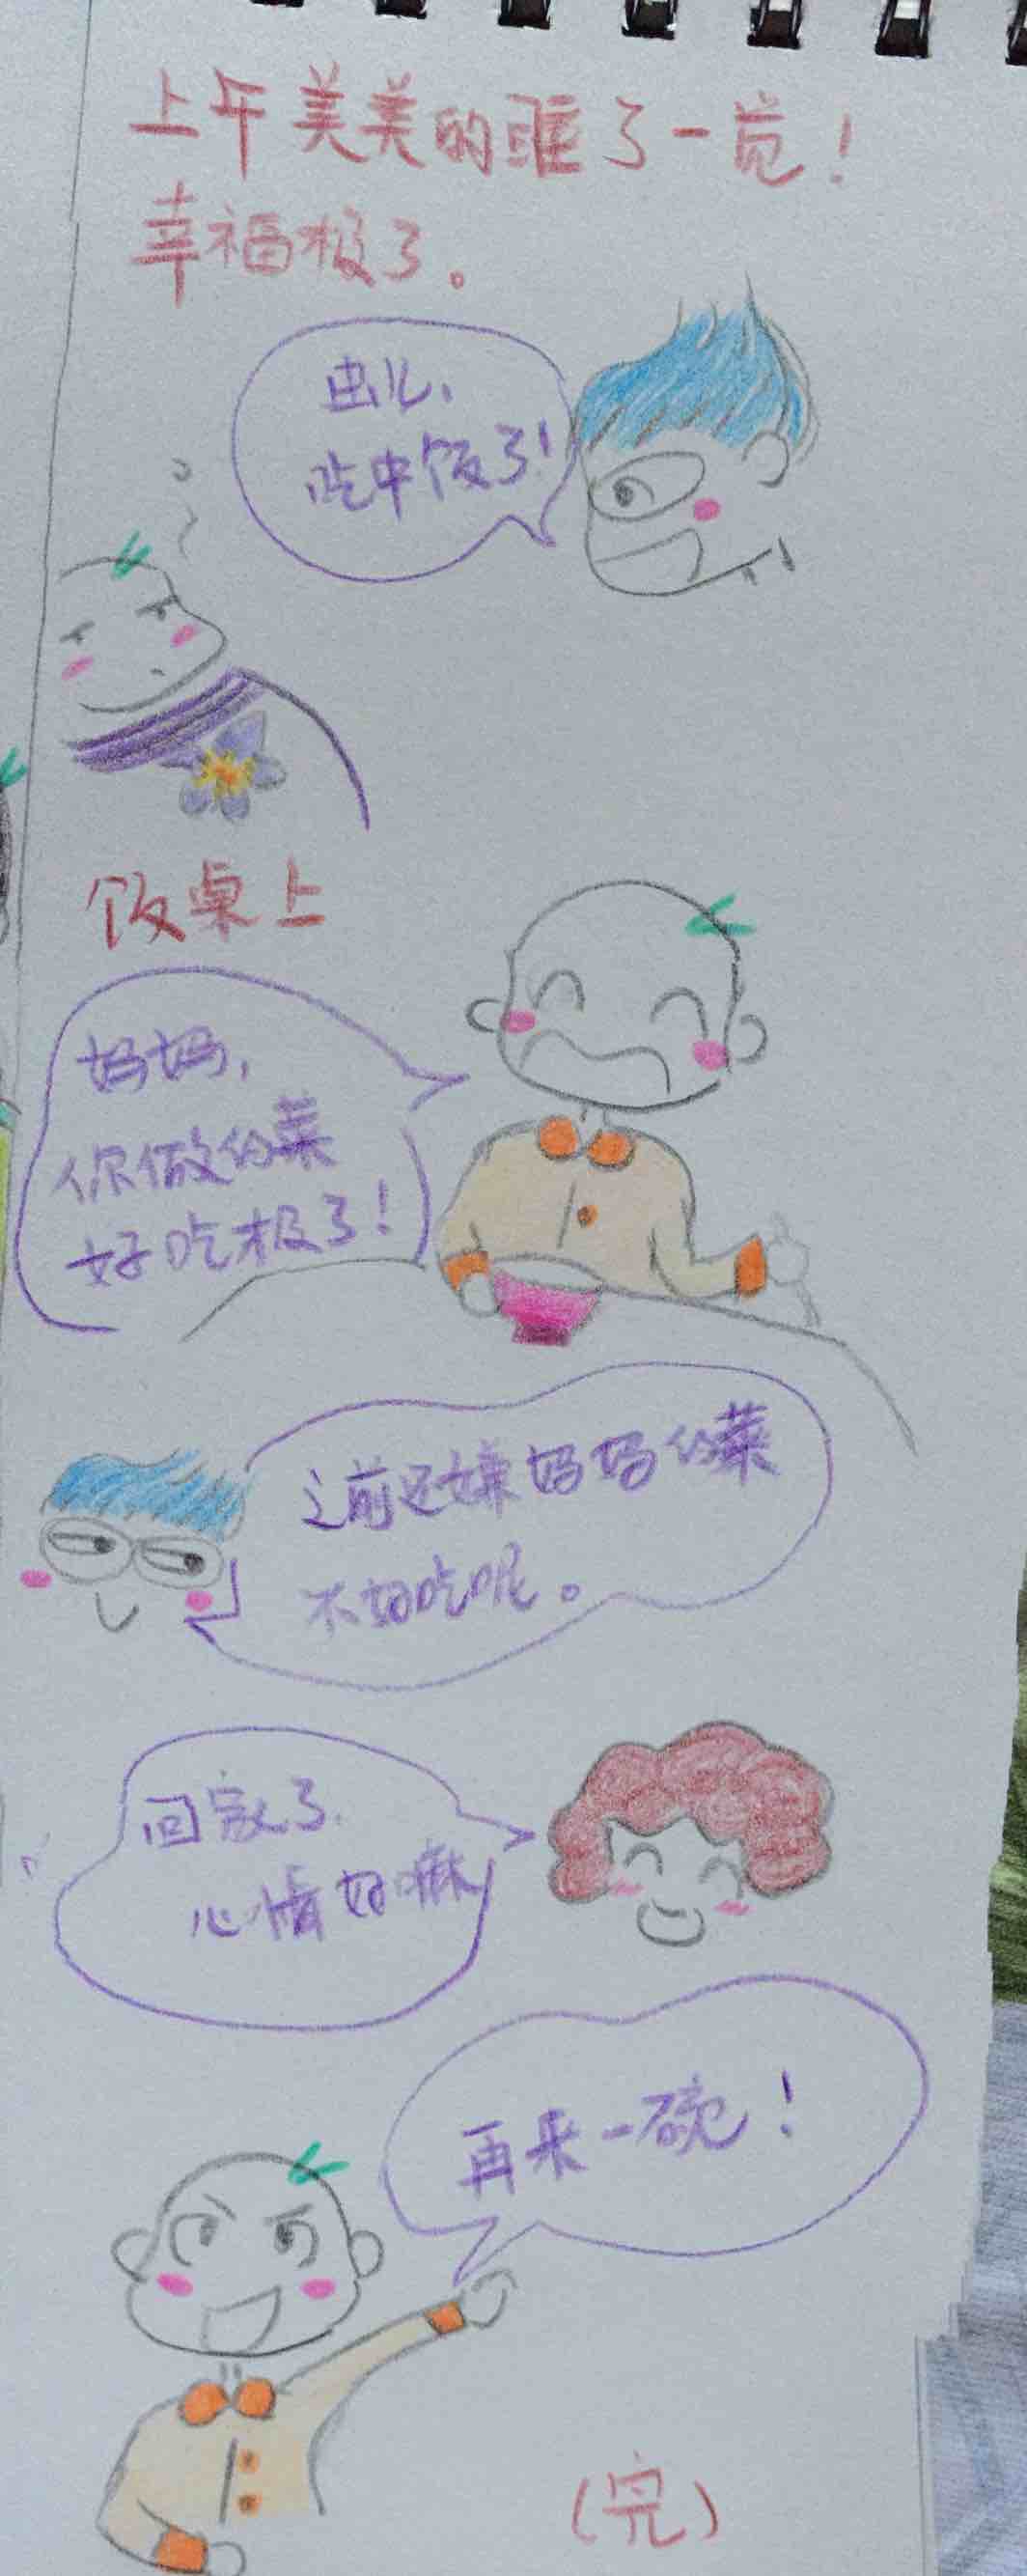 上午美美的睡了一觉！
幸福极了。
虫儿，
吃中饭了！
饭桌上
妈妈，
你做的菜
好吃极了！
之前还嫌妈妈的菜
不好吃呢。
回家了，
心情好嘛
再来一碗！
（完）